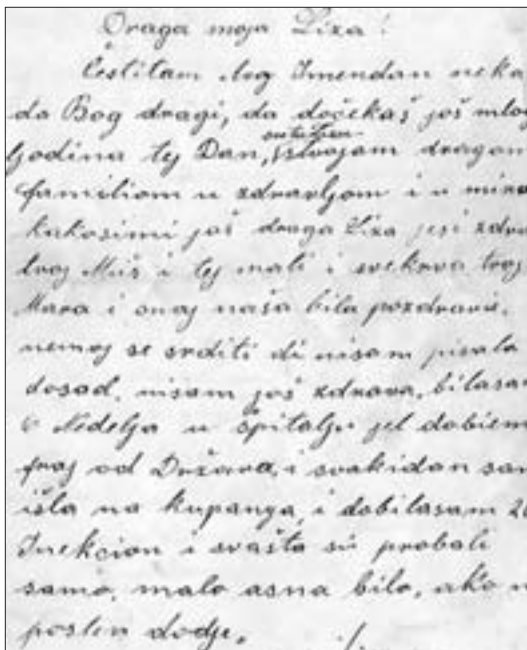 Draga moja Liza!
Čestitam tvoj Imendan neka
da Bog dragi, da dočekaš još mlog
Godina tej Dan, stvojam dragom
familiom u zdravljom i u miru
kakosimi još draga Liza jesi zdra
tvoj Muš i tej mali i svekrva tvoj
Mara i onaj naša bila pozdravi,
nemoj se srditi di nisam pisala
dosad, nisam još zdrava, bilasam
6 Nedelja u špitalju jel dobiem
fraj od Država, i svakidan sam
išla na kupanga, i dobilasam 20
Inekcion i svašta sú probali
samo, malo asna bilo, ako
poslen dodje,